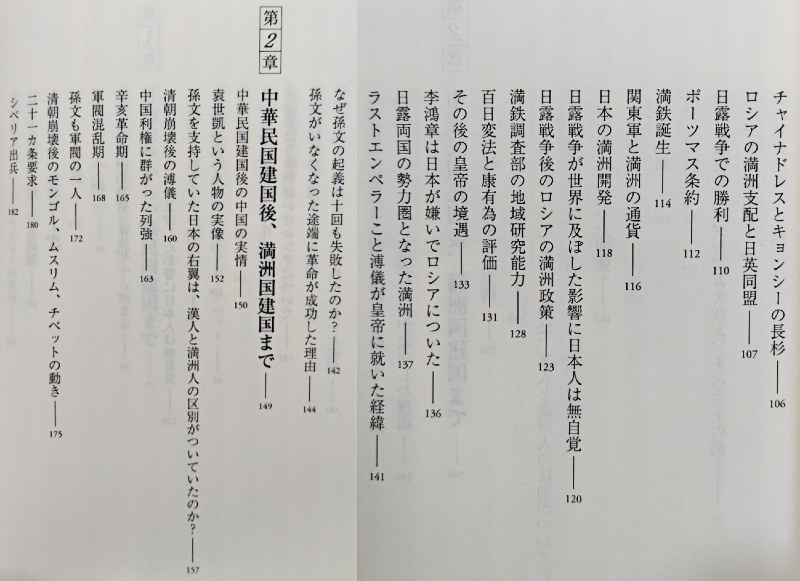 チャイナドレスとキョンシーの長衫――106
ロシアの満洲支配と日英同盟――107
日露戦争での勝利――110
ポーツマス条約――112
満鉄誕生――114
関東軍と満洲の通貨――116
日本の満洲開発――118
日露戦争が世界に及ぼした影響に日本人は無自覚――120
日露戦争後のロシアの満洲政策――123
満鉄調査部の地域研究能力――128
百日変法と康有為の評価――131
その後の皇帝の境遇――133
李鴻章は日本が嫌いでロシアについた――136
日露両国の勢力圏となった満洲――137
ラストエンペラーこと溥儀が皇帝に就いた経緯――141
なぜ孫文の起義は十回も失敗したのか?――142
孫文がいなくなった途端に革命が成功した理由――144
第2章 中華民国建国後、満洲国建国まで――149
中華民国建国後の中国の実情――150
袁世凱という人物の実像――152
孫文を支持していた日本の右翼は、漢人と満洲人の区別がついていたのか?――157
清朝崩壊後の溥儀――160
中国利権に群がった列強――163
辛亥革命期――165
軍閥混乱期――168
孫文も軍閥の一人――172
清朝崩壊後のモンゴル、ムスリム、チベットの動き――175
二十一カ条要求――180
シベリア出兵――182